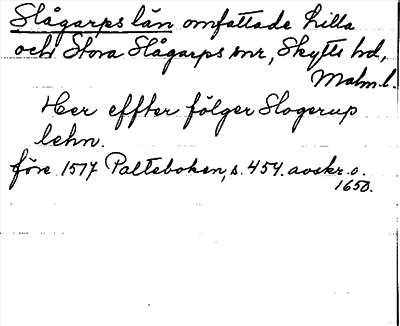 Slågarps län omfattade Lilla
och Stora Slågarps snr, Skytts hd,
Malm.l.
Her effter følger Slogerup
lehn.
före 1517 Palteboken, s. 454. avskr. o.
1650.